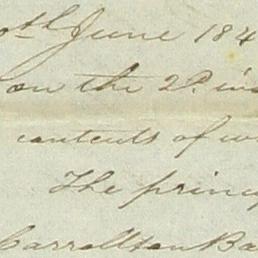 th June 184
on the 2d ins
contents of w
The princ
Carrollton Ba